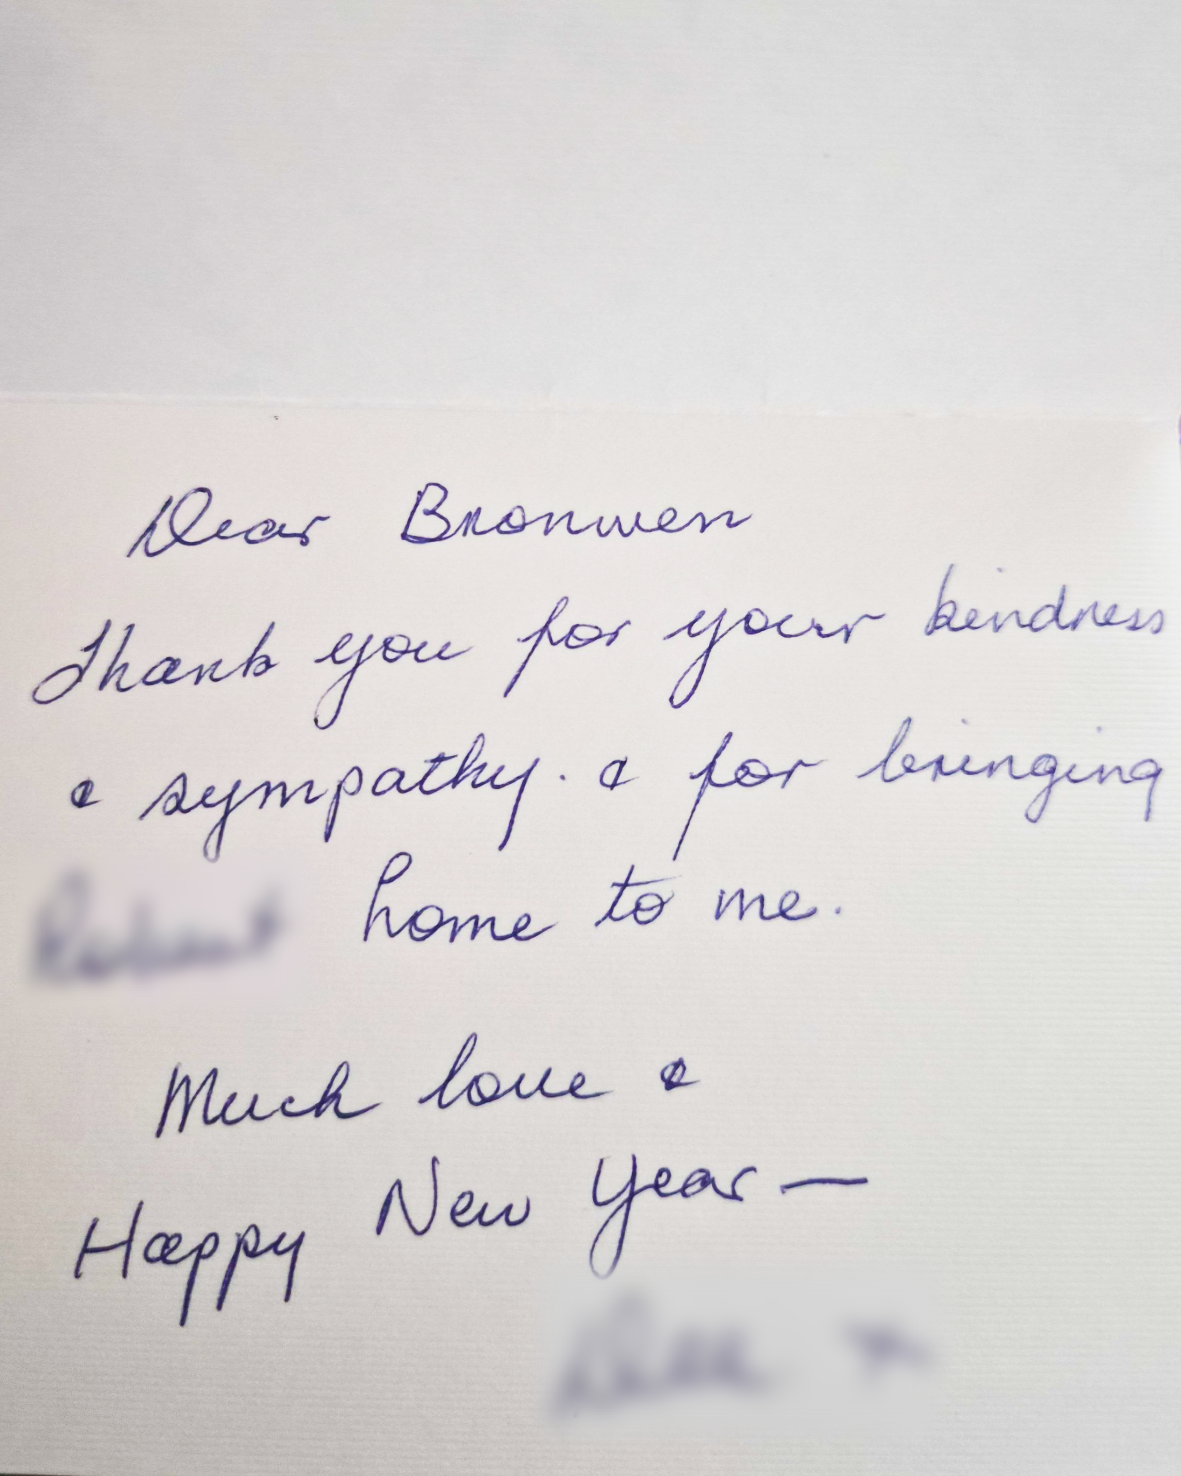 Dear Bronwen
Thank you for your kindness
& sympathy. & for bringing
home to me.
Much love &
Happy New Year —